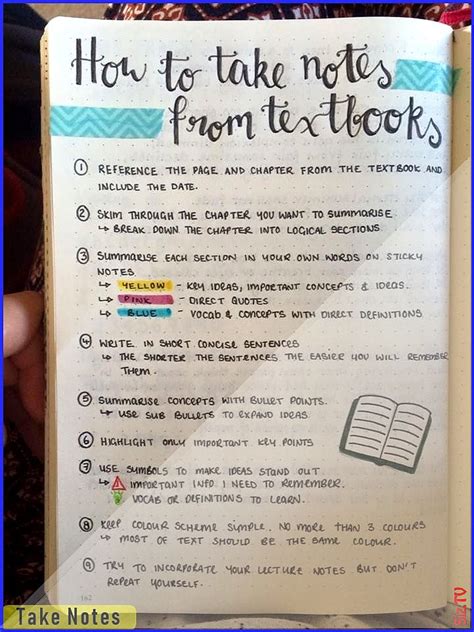 How to take notes
from textbooks
1 REFERENCE THE PAGE AND CHAPTER FROM THE TEXTBOOK AND
INCLUDE THE DATE.
2 SKIM THROUGH THE CHAPTER YOU WANT TO SUMMARISE.
↳ BREAK DOWN THE CHAPTER INTO LOGICAL SECTIONS
3 SUMMARISE EACH SECTION IN YOUR OWN WORDS ON STICKY
NOTES
↳ YELLOW - KEY IDEAS, IMPORTANT CONCEPTS & IDEAS.
↳ PINK - DIRECT QUOTES
↳ BLUE - VOCAB & CONCEPTS WITH DIRECT DEFINITIONS
4 WRITE IN SHORT CONCISE SENTENCES
↳ THE SHORTER THE SENTENCES THE EASIER YOU WILL REMEMBER
THEM.
5 SUMMARISE CONCEPTS WITH BULLET POINTS.
↳ USE SUB BULLETS TO EXPAND IDEAS.
6 HIGHLIGHT ONLY IMPORTANT KEY POINTS
7 USE SYMBOLS TO MAKE IDEAS STAND OUT
↳ IMPORTANT INFO I NEED TO REMEMBER.
VOCAB OR DEFINITIONS TO LEARN.
8 KEEP COLOUR SCHEME SIMPLE. NO MORE THAN 3 COLOURS
↳ MOST OF TEXT SHOULD BE THE SAME COLOUR.
9 TRY TO INCORPORATE YOUR LECTURE NOTES BUT DON'T
REPEAT YOURSELF.
Take Notes